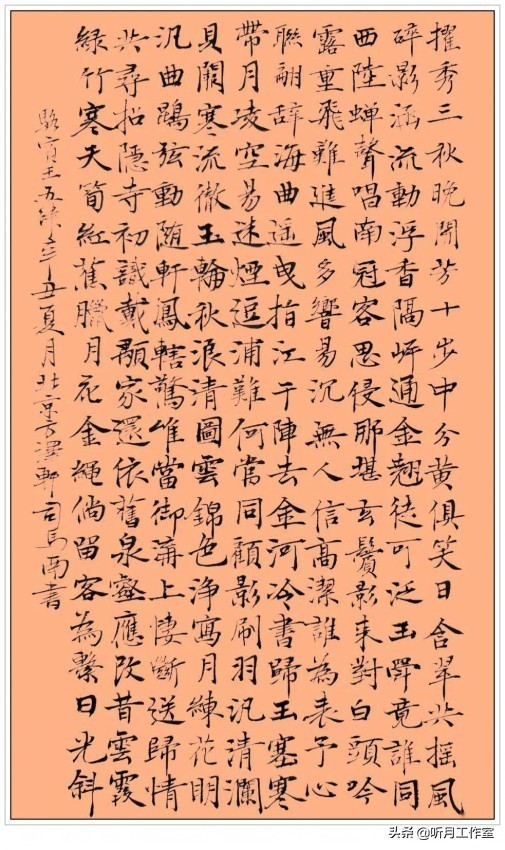 擢秀三秋晚開芳十步中分黄俱笑日含翠共摇風
碎影涵流動浮香隔岍通金翘徒可泛玉斝竟誰同
西陸蝉聲唱南冠客思侵那堪玄鬢影来對白頭吟
露重飛難進風多響易沉無人信高潔誰為表予心
聯翩辞海曲遥曳指江干陣去金河冷書歸玉塞寒
帶月凌空易迷煙逗浦難何當同顧影刷羽汎清瀾
貝闕寒流徹玉輪秋浪清圖雲錦色浄寫月練花明
汎曲鵾弦動随軒鳳轄驚唯當御溝上悽斷送歸情
共尋招隱寺初識戴顒家還依舊泉壑應改昔雲霞
綠竹寒天筍紅蕉臘月花金繩倘留客為繫日光斜
駱賓王五律辛丑夏月北京方澤軒司馬南書
头条 @听月工作室